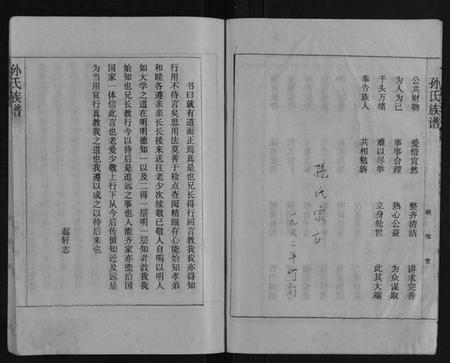 孙氏族谱
公共财物 爱惜宜然 整齐清洁 讲求完善
为人为己 事事合理 热心公益 为众谋取
千头万绪 难以尽举 立身处世 此其大端
奉告族人 共相勉旃
孙氏家
一九九二年
堂
孙氏族谱
书曰就有道而正焉真是长兄长得行问言教我我亦得知
行用不待言矣思用法莫善于检点查阅精细存心能始知孝弟
和睦各遵亲亲长长接来送往老少次续敬己敬人自明以明人
如大学之道在明明德知一以及二得一层明一层知者教我我
始知也兄长教行今以待后是追远之事也人能齐家亦能治国
国家一体信此言也老爱少敬上行下从今后传留知近及远是
为当用宣行真教我之道也我遵以成之以待后来也
起轩志